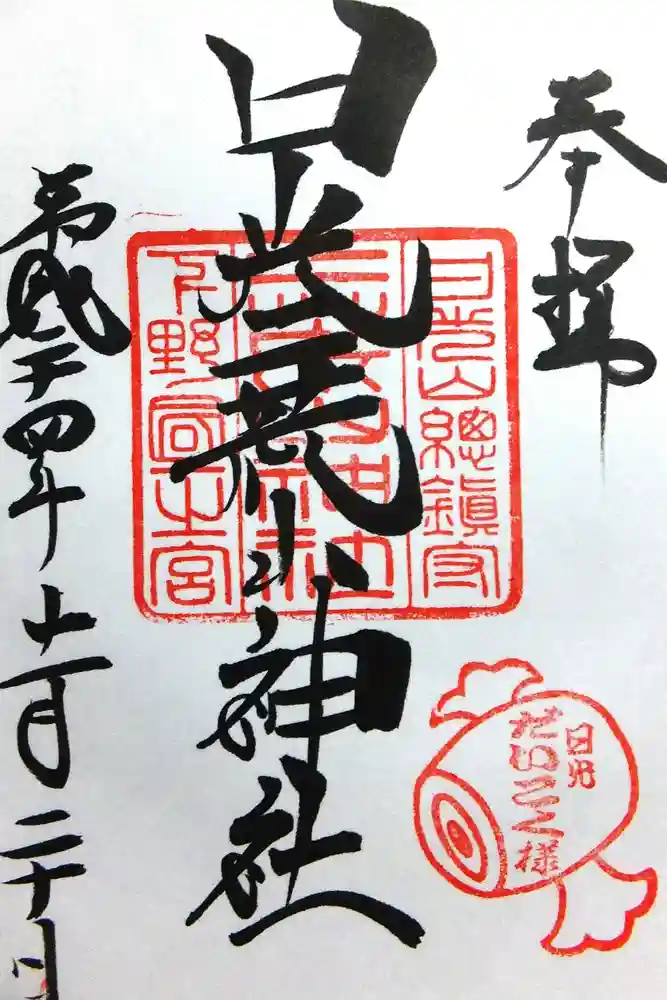 奉拝
日光二荒山神社
平成二十四年十一月二十日
日光山總鎮守
二荒山神社
下野國一之宮
日光
だいこく様